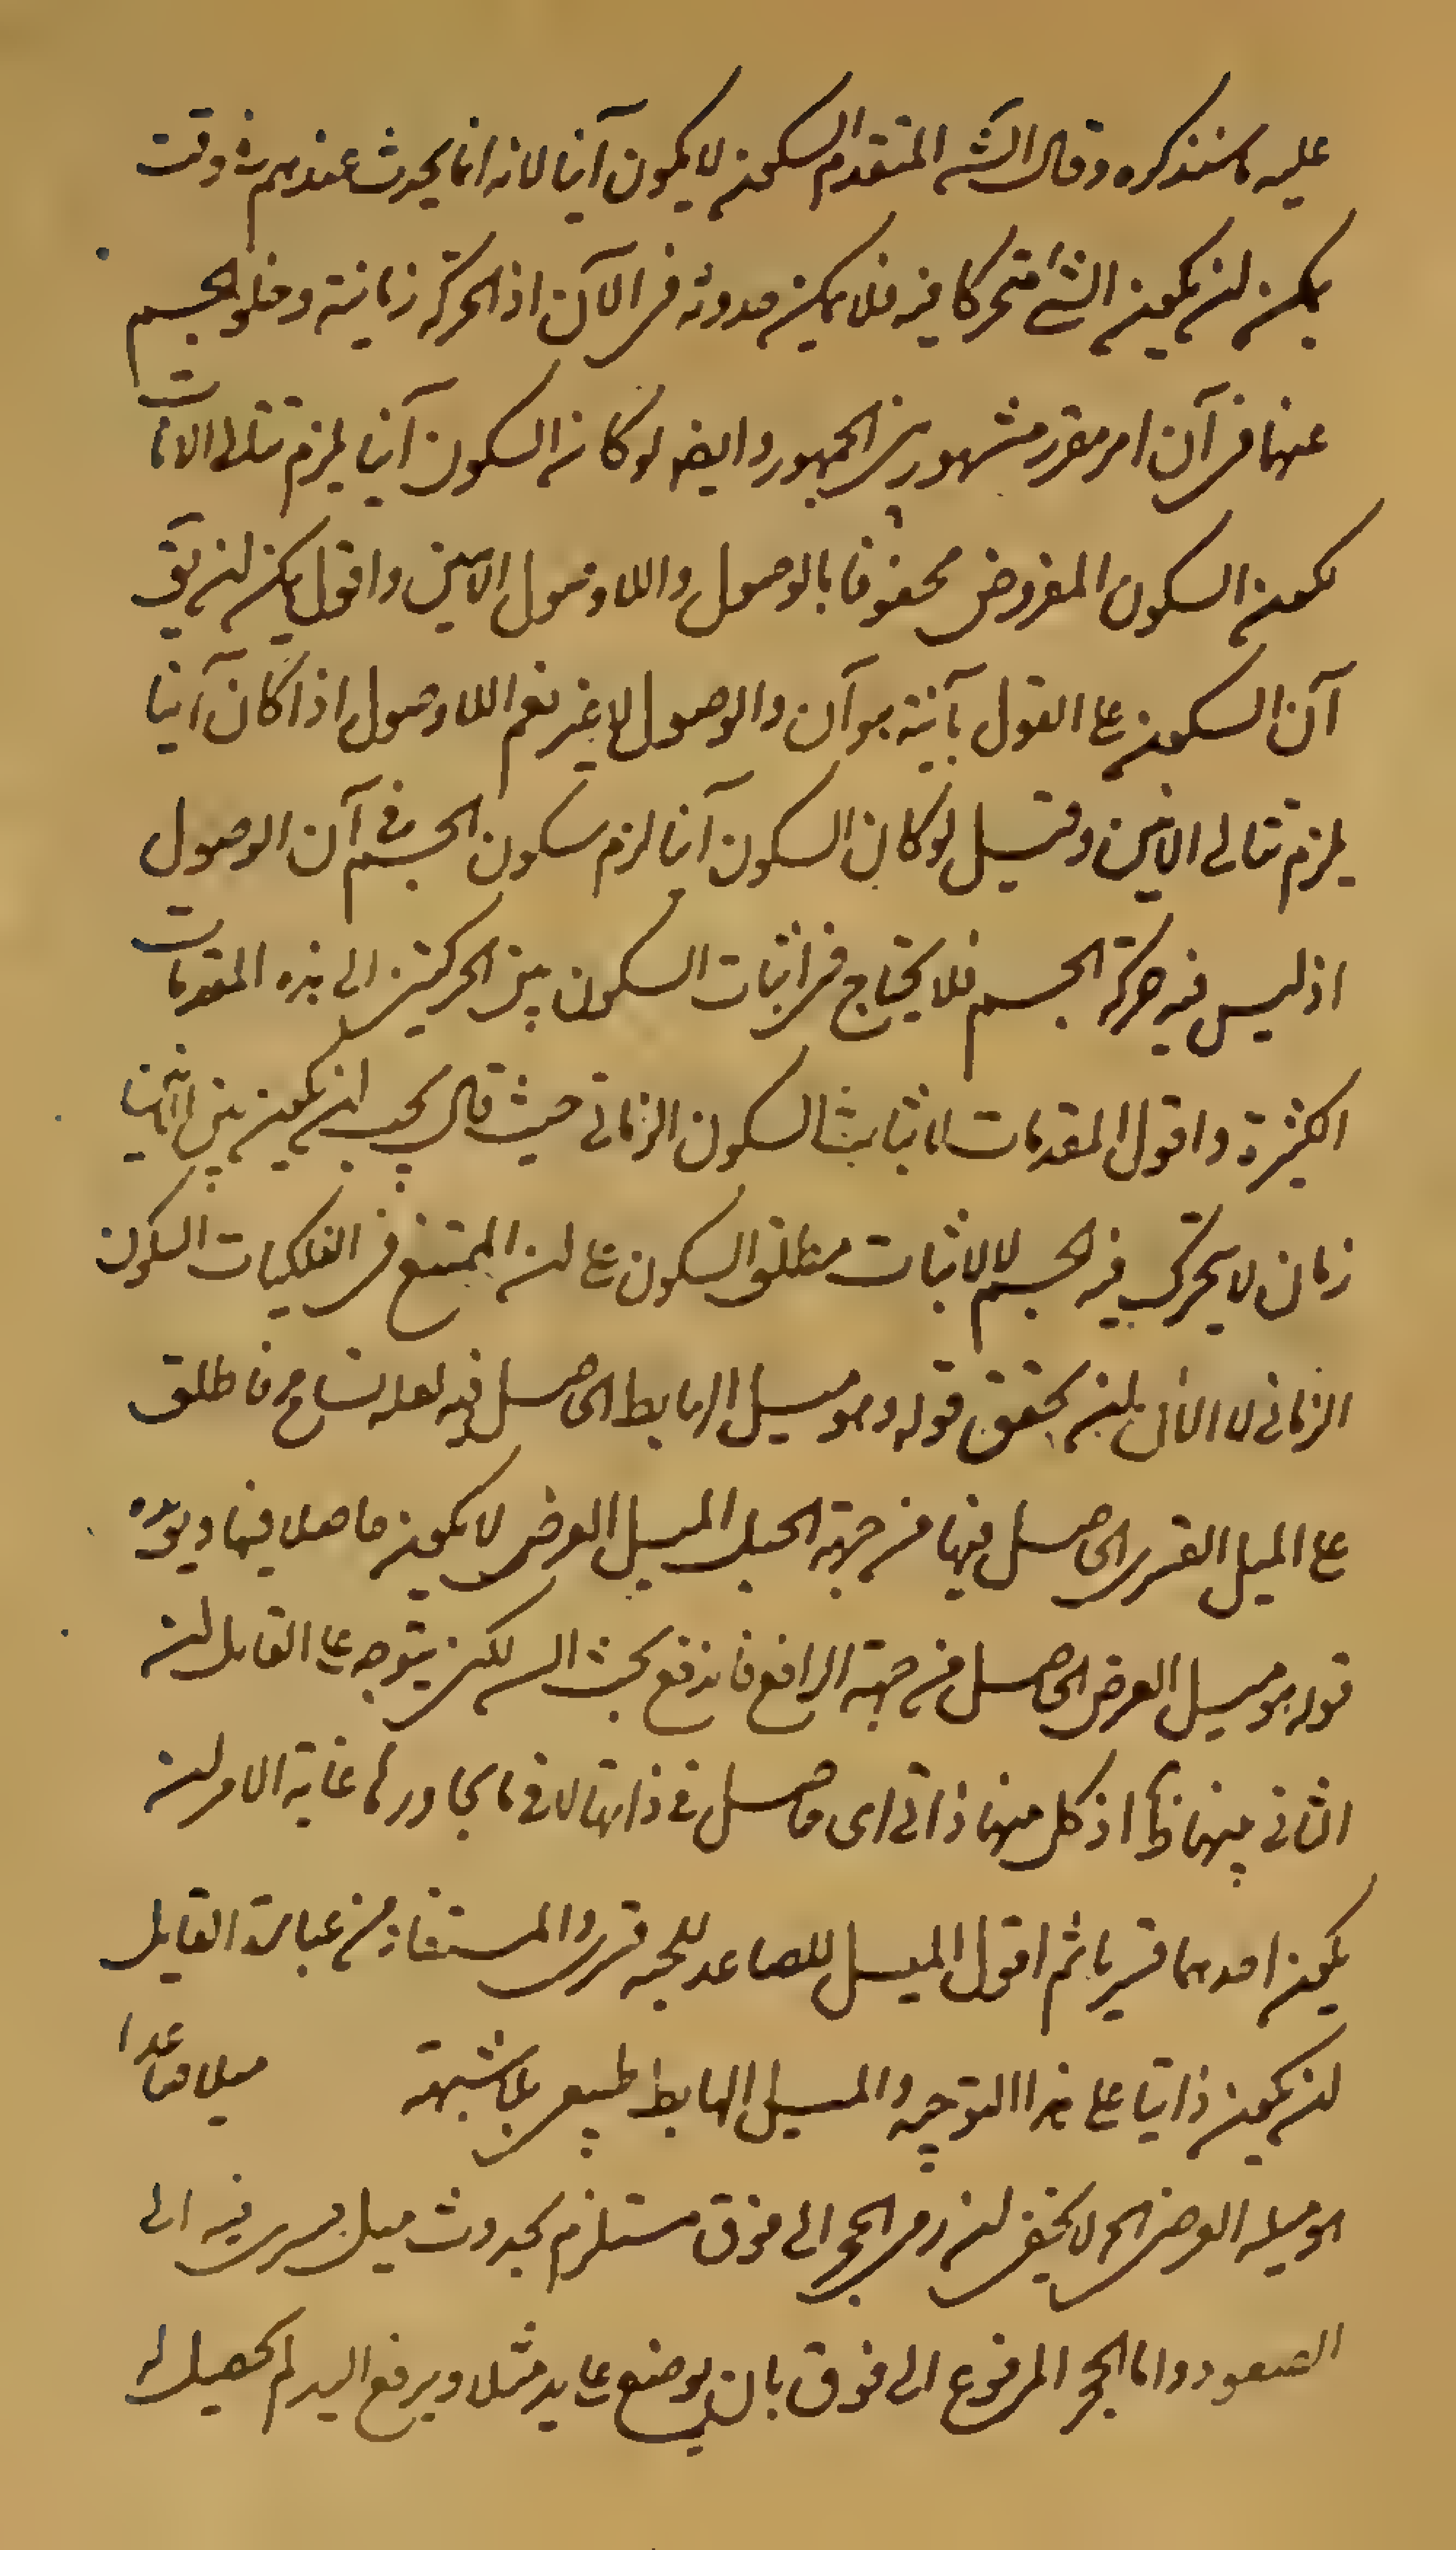 عليه ما سنذكره وقال الش المتقدم السكون لا يكون آنيا لانه انما يحدث عندهم في وقت
يمكن ان يكون الشئ متحركا فيه فلا يمكن حدوثه في الآن اذ الحركة زمانية وخلو الجسم
عنها في آن امر مقرر مشهور بين الجمهور وايضا لو كان السكون آنيا يلزم تتالى الانات
لكون السكون المفروض محفوفا بالوصول واللاوصول الانيين واقول يمكن ان يق
آن السكون على القول بآنية هو آن والوصول لا غير نعم اللاوصول اذا كان آنيا
يلزم تتالى الانين وقيل لو كان السكون آنيا لزم سكون الجسم في آن الوصول
اذ ليس فيه حركة الجسم فلا يحتاج في اثبات السكون بين الحركتين الى هذه المقدمات
الكثيرة واقول المقدمات لاثبات السكون الزمانى حيث قال يجب ان يكون بين الانين
زمان لا يتحرك فيه الجسم لا لاثبات مطلق السكون على ان الممتنع في الفلكيات السكون
الزمانى لا الانى بل ان يحقق قوله وهو ميل الهابط الحاصل فيه لعله تسامح فاطلق
على الميل القسرى الحاصل فيها من جهة الحبل الميل العرضى لا يكون حاصلا فيها ويؤيده
قوله هو ميل العرضى الحاصل من جهة الرافع فاندفع بحث الس لكن يتوجه على القايل ان
الثانى بينهما اذ كل منهما ذاتى اى حاصل في ذاتها لا في ما يجاورها غاية الامر ان
يكون احدهما قسريا ثم اقول الميل للصاعد للجبة قسرى والمستفاد من عبارة القايل
ان يكون ذاتيا على هذا التوجيه والميل الهابط طبيعى بلا شبهة ميلا صاعدا
هو ميله العرضى الخ لا يخفى ان رمى الحجر الى فوق مستلزم لحدوث ميل قسرى فيه الى
الصعود واما الحجر المرفوع الى فوق بان يوضع على يد مثلا ويرفع اليد لم يحصل له